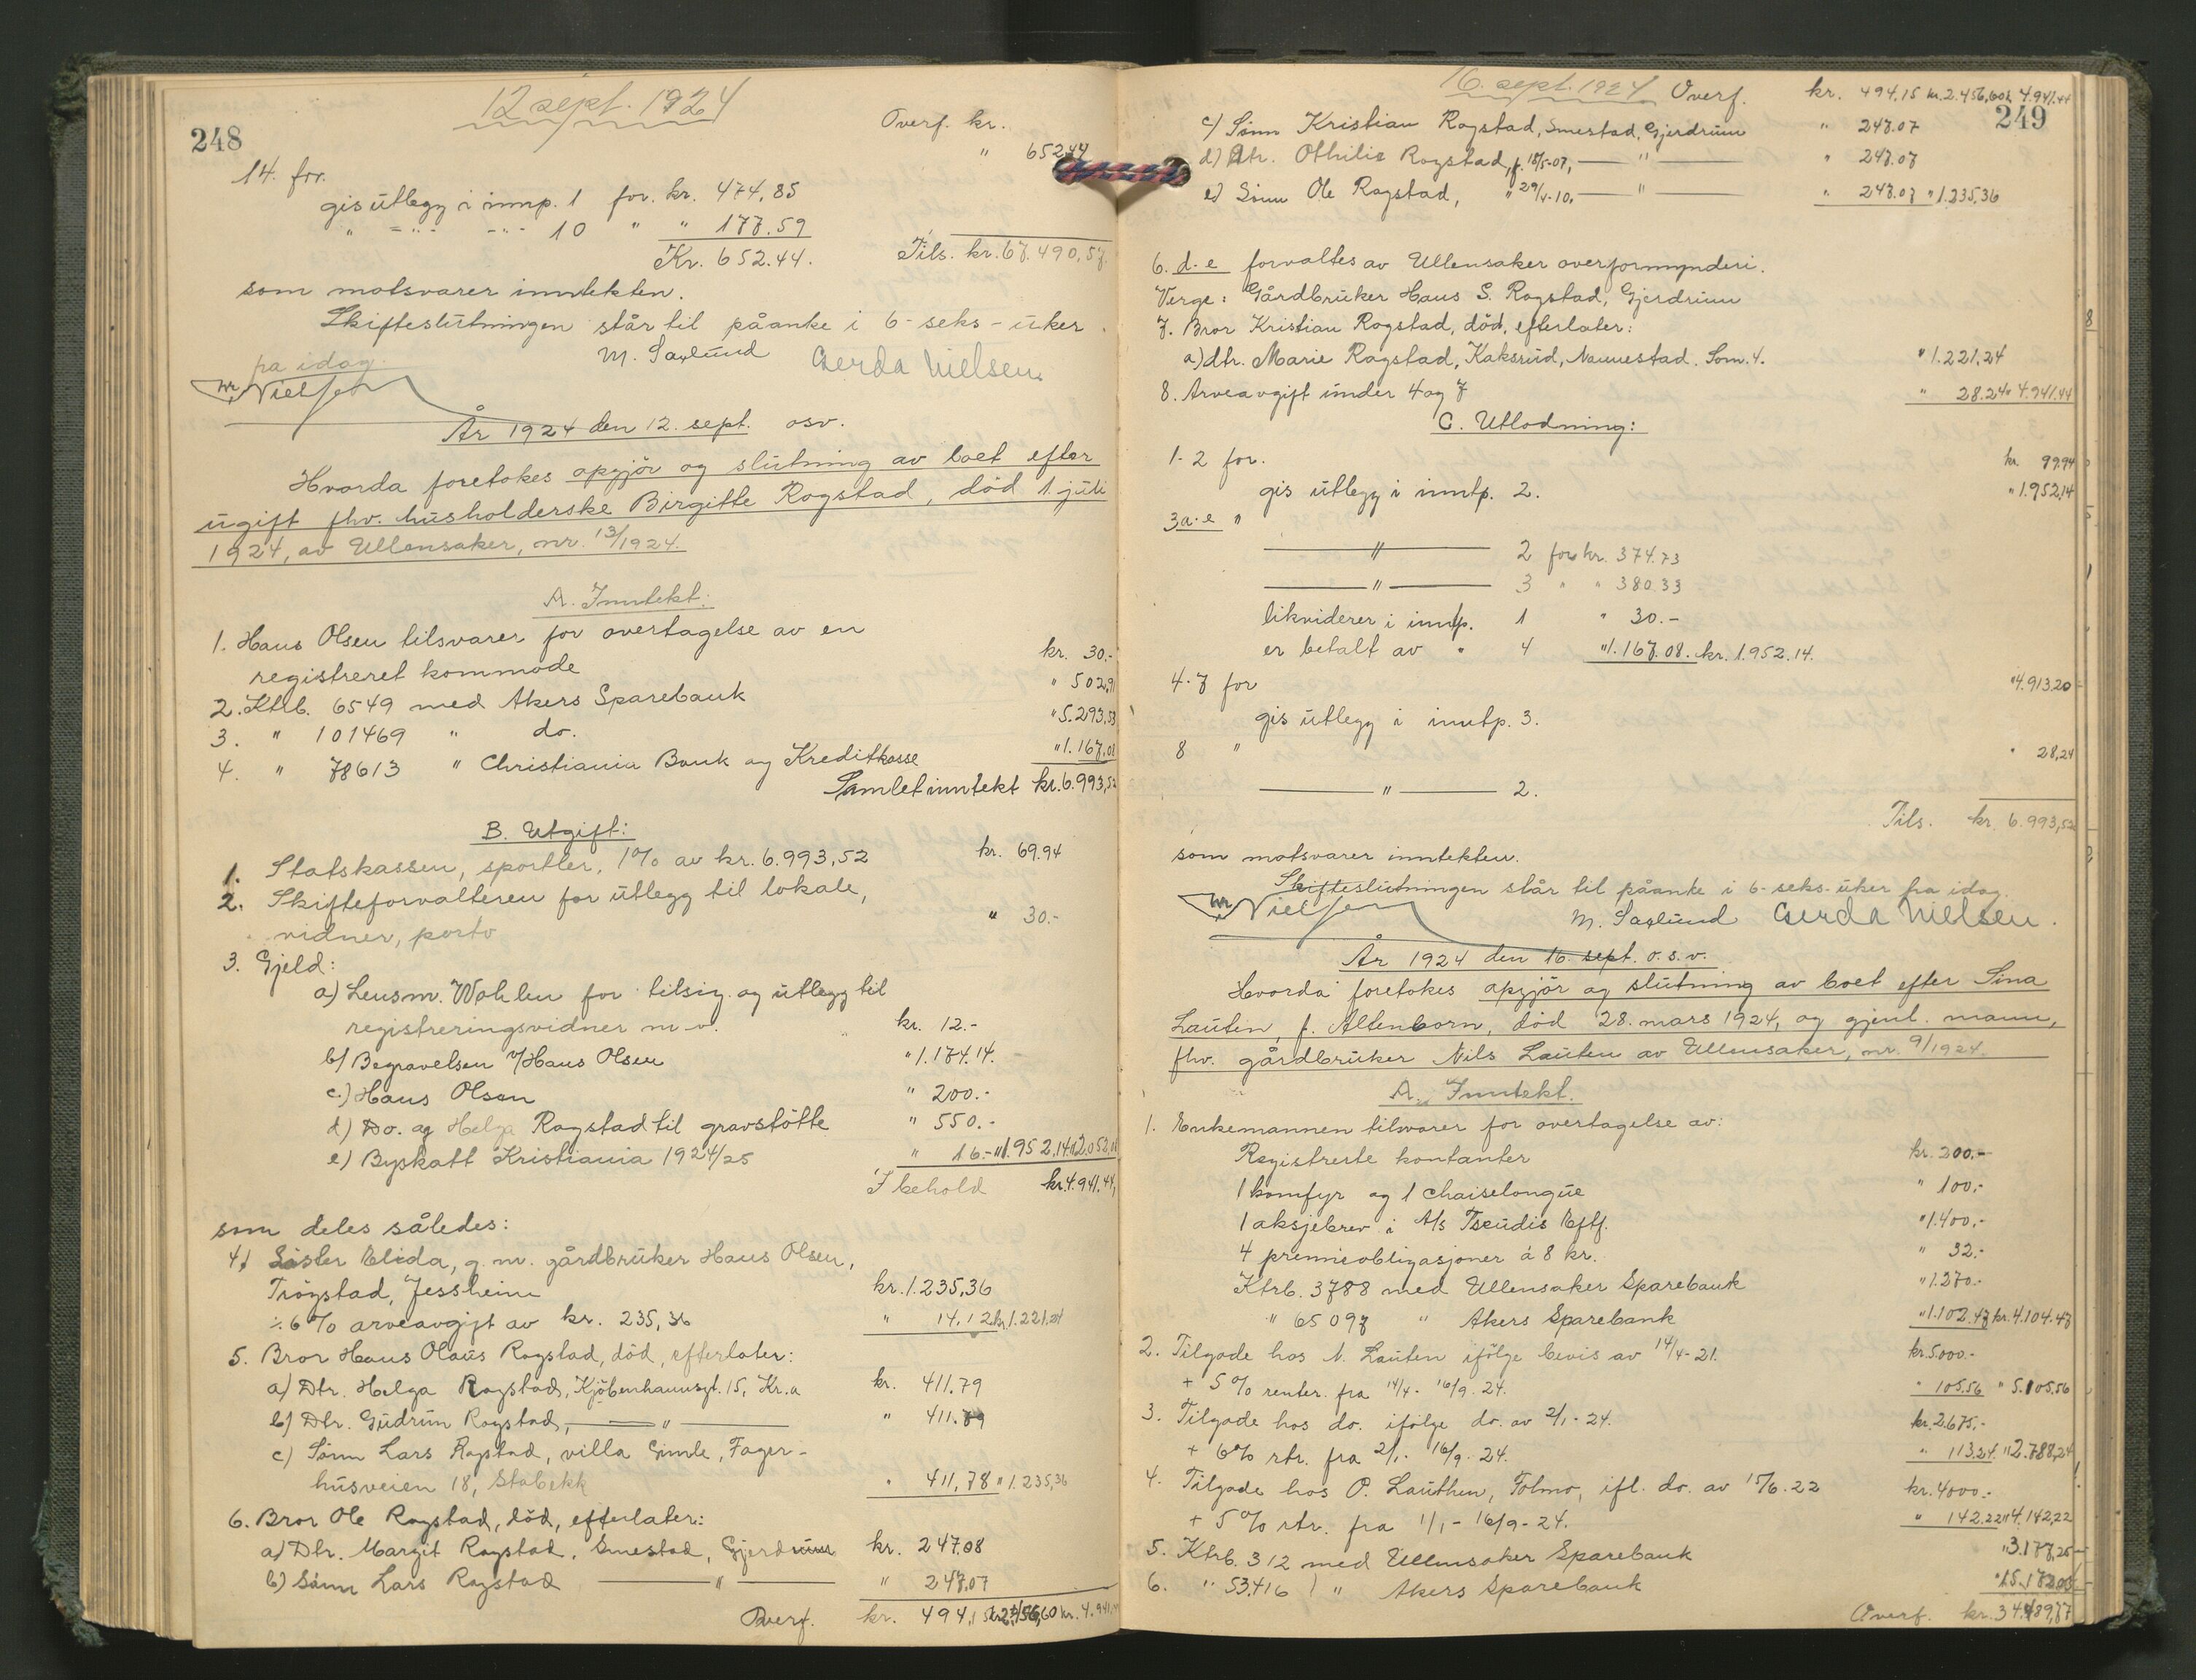 248
12 sept. 1924
Overf. kr.
14. for. " 652.44
gis utlegg i inntp. 1 for kr. 474,85
" -"- -"- 10 " " 177.59
Kr. 652.44. Tils. kr. 67.490,57
som motsvarer inntekten.
Skifteslutningen står til påanke i 6-seks-uker
fra idag.
M. Saxlund Gerda Nielsen
Nielsen
År 1924 den 12. sept. osv.
Hvorda foretokes opgjör og slutning av boet efter
ugift fhv. husholderske Birgitte Rogstad, död 1. juli
1924, av Ullensaker, nr. 13/1924.
A. Inntekt:
1. Hans Olsen tilsvarer for overtagelse av en
registreret kommode kr. 30.-
2. Ktrb. 6549 med Akers Sparebank " 502,91
3. " 101469 " do. " 5.293,53
4. " 78613 " Christiania Bank og Kreditkasse " 1.167,08
Samlet inntekt kr. 6.993,52
B. Utgift:
1. Statskassen, sportler, 1% av kr. 6.993,52 kr. 69.94
2. Skifteforvalteren for utlegg til lokale,
vidner, porto " 30.-
3. Gjeld:
a) Lensm. Wohlen for tilsig. og utlegg til
registreringsvidner m.v. kr. 12.-
b) Begravelsen v/Hans Olsen " 1.174.14.
c.) Hans Olsen " 200.-
d) Do. og Helga Rogstad til gravstötte " 550.-
e) Byskatt Kristiania 1924/25 " 16.- " 1.952,14 " 2.052,08
I behold kr. 4.941.44,
som deles således:
4) Söster Elida, g. m. gårdbruker Hans Olsen,
Trögstad, Jessheim kr. 1.235,36
÷ 6% arveavgift av kr. 235,36 " 14,12 kr. 1.221.24
5. Bror Hans Olaus Rogstad, död, efterlater:
a) Dtr. Helga Rogstad, Kjöbenhavnsgt. 15, Kr.a kr. 411.79
b) Dtr. Gudrun Rogstad, — " — " 411.79
c) Sönn Lars Rogstad, villa Gimle, Fager-
husveien 18, Stabekk " 411,78 " 1.235,36
6. Bror Ole Rogstad, död, efterlater:
a) Dtr. Margit Rogstad, Smestad, Gjerdrum kr. 247.08
b) Sönn Lars Rogstad — " — " 247,07
Overf. kr. 494,15 kr. 2.456,60 kr. 4.941,44
249
16. sept. 1924 Overf. kr. 494,15 kr. 2.456,60 kr. 4.941.44
c) Sönn Kristian Rogstad, Smestad, Gjerdrum " 247.07
d) Dtr. Othilie Rogstad, f. 18/5-07, — " — " 247.07
e) Sönn Ole Rogstad, " 29/4-10. — " — " 247.07 " 1.235,36
6. d-e forvaltes av Ullensaker overformynderi.
Verge: Gårdbruker Hans S. Rogstad, Gjerdrum
7. Bror Kristian Rogstad, död, efterlater:
a) dtr. Marie Rogstad, Kaksrud, Nannestad. Som 4. " 1.221,24
8. Arveavgift under 4 og 7 " 28.24 " 4.941.44
C. Utlodning:
1-2 for. kr. 99.94
gis utlegg i inntp. 2.
3a-e " " 1.952,14
— " — 2 for kr. 374.73
— " — 3 " " 380.33
likviderer i inntp. 1 " 30.-
er betalt av " 4 " 1.167.08. kr. 1.952.14.
4-7 for " 4.913.20
gis utlegg i inntp. 3.
8 " " 28,24
— " — 2.
Tils. kr. 6.993,52
som motsvarer inntekten.
Skifteslutningen står til påanke i 6-seks-uker fra idag.
Nielsen M. Saxlund Gerda Nielsen.
År 1924 den 16. sept. o.s.v.
Hvorda foretokes opgjör og slutning av boet efter Sina
Lauten, f. Altenborn, död 28. mars 1924, og gjenl. mann,
fhv. gårdbruker Nils Lauten av Ullensaker, nr. 9/1924.
A. Inntekt.
1. Enkemannen tilsvarer for overtagelse av:
Registrerte kontanter kr. 200.-
1 komfyr og 1 chaiselongue " 100,-
1 aksjebrev i A/s Tseudis Eftf. " 1.400,-
4 premieobligasjoner á 8 kr. " 32.-
Ktrb. 3788 med Ullensaker Sparebank " 1.270.-
" 65097 " Akers Sparebank " 1.102.47 kr. 4.104.47
2. Tilgode hos N. Lauten ifölge bevis av 14/4-21. kr. 5.000.-
+ 5% renter fra 14/4 - 16/9 - 24. " 105.56 " 5.105,56
3. Tilgode hos do. ifölge do. av 2/1-24. kr. 2.675,-
+ 6% rtr. fra 2/1- 16/9 - 24. " 113.24 " 2.788,24
4. Tilgode hos P. Lauthen, Folmo, ifl. do. av 15/6.22 kr. 4000.-
+ 5% rtr. fra 1/1 - 16/9 - 24. " 142.22 " 4.142,22
5. Ktrb. 312 med Ullensaker Sparebank " 3.177,25
6. " 53.416 " Akers Sparebank " 15.172.03
Overf. kr. 34.489,77